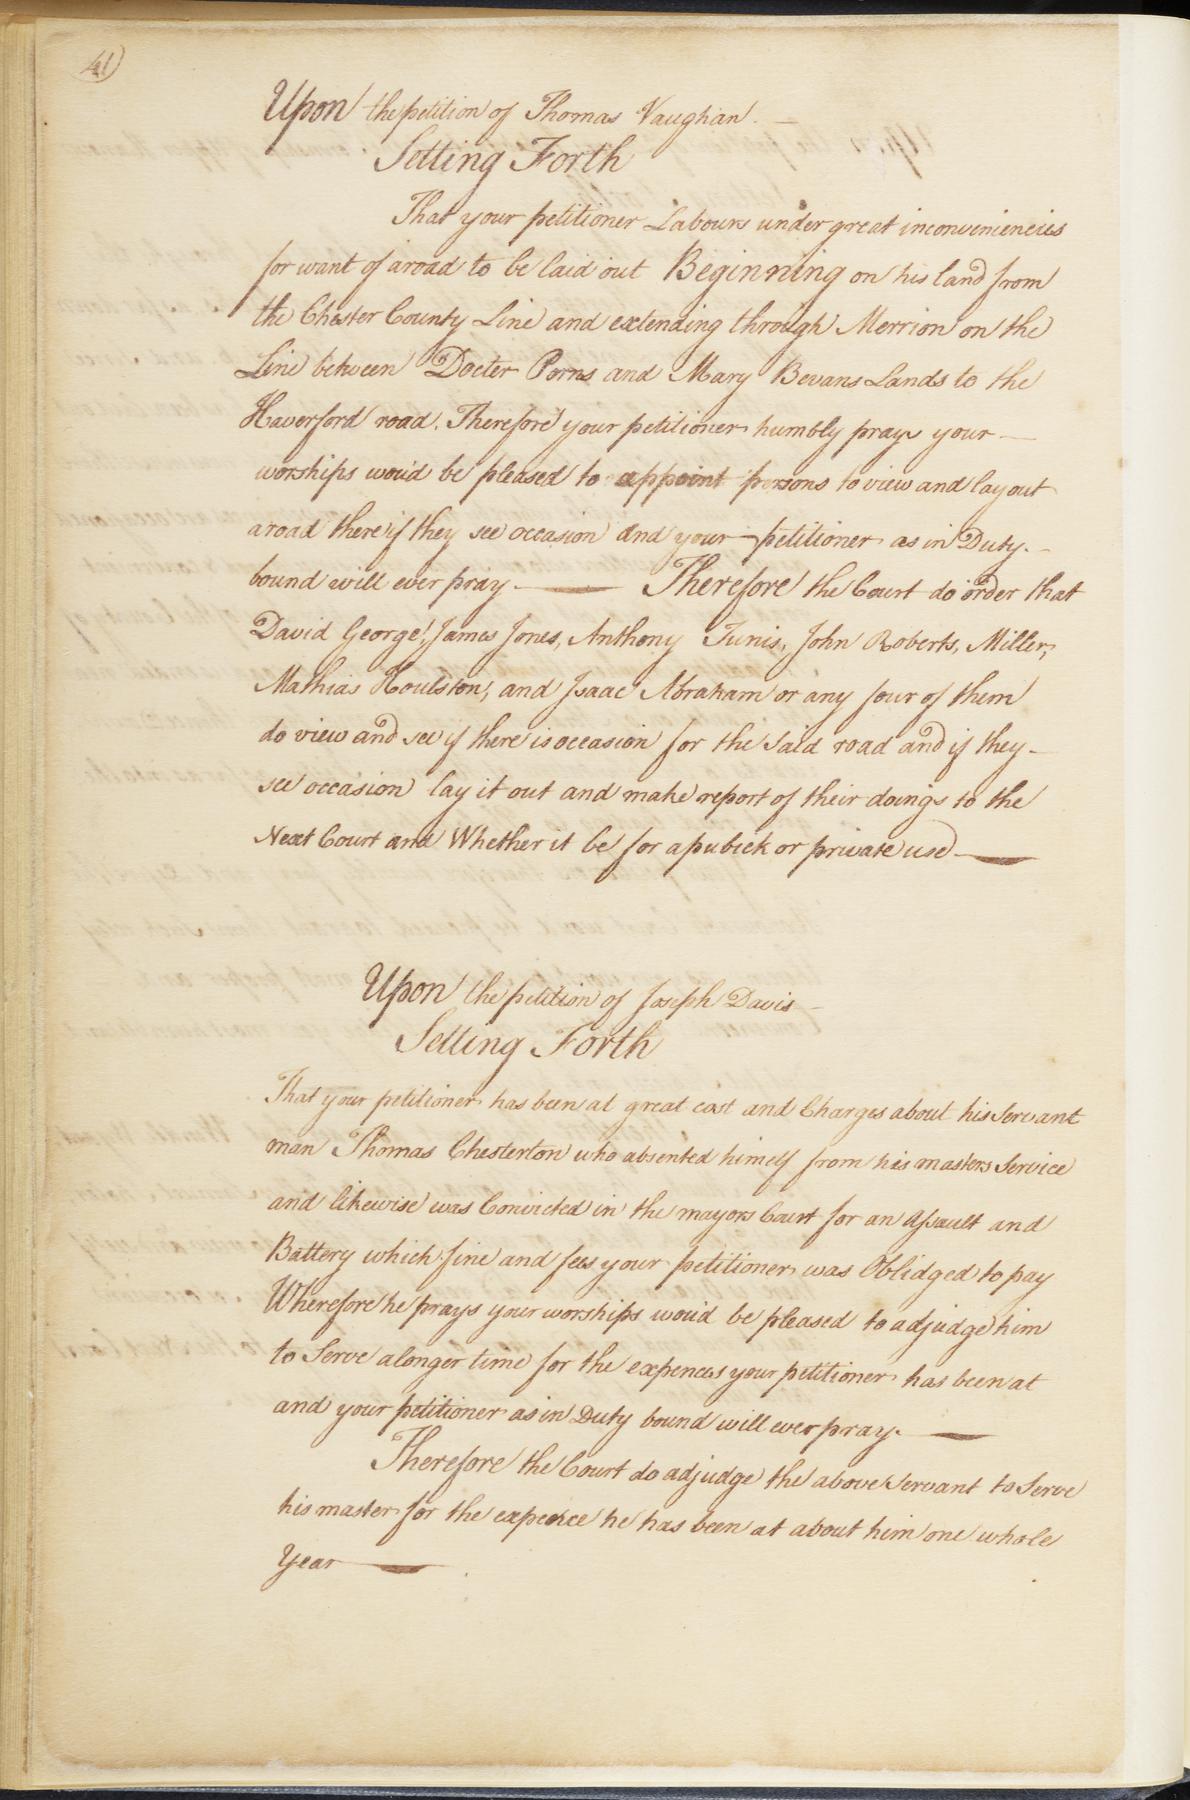 41
Upon the petition of Thomas Vaughan. —
Setting Forth
That your petitioner Labours under great inconveniencies
for want of a road to be laid out Beginning on his land from
the Chester County Line and extending through Merrion on the
Line between Docter Porns and Mary Bevans Lands to the
Haverford road. Therefore your petitioner humbly prays your —
worships wou'd be pleased to appoint persons to view and lay out
a road there if they see occasion and your petitioner as in Duty. -
bound will ever pray. — Therefore the Court do order that
David George, James Jones, Anthony Tunis, John Roberts, Miller,
Mathias Houlston, and Isaac Abraham or any four of them
do view and see if there is occasion for the said road and if they -
see occasion lay it out and make report of their doings to the
Next Court and Whether it be for a pubick or private use —
Upon the petition of Joseph Davis —
Setting Forth
That your petitioner has been at great cost and Charges about his Servant
man Thomas Chesterton who absented himelf from his masters Service
and likewise was Convicted in the mayors Court for an Assault and
Battery which fine and fees your petitioner was Oblidged to pay
Wherefore he prays your worships wou'd be pleased to adjudge him
to Serve a longer time for the expences your petitioner has been at
and your petitioner as in Duty bound will ever pray. —
Therefore the Court do adjudge the above Servant to Serve
his master for the expence he has been at about him one whole
Year —